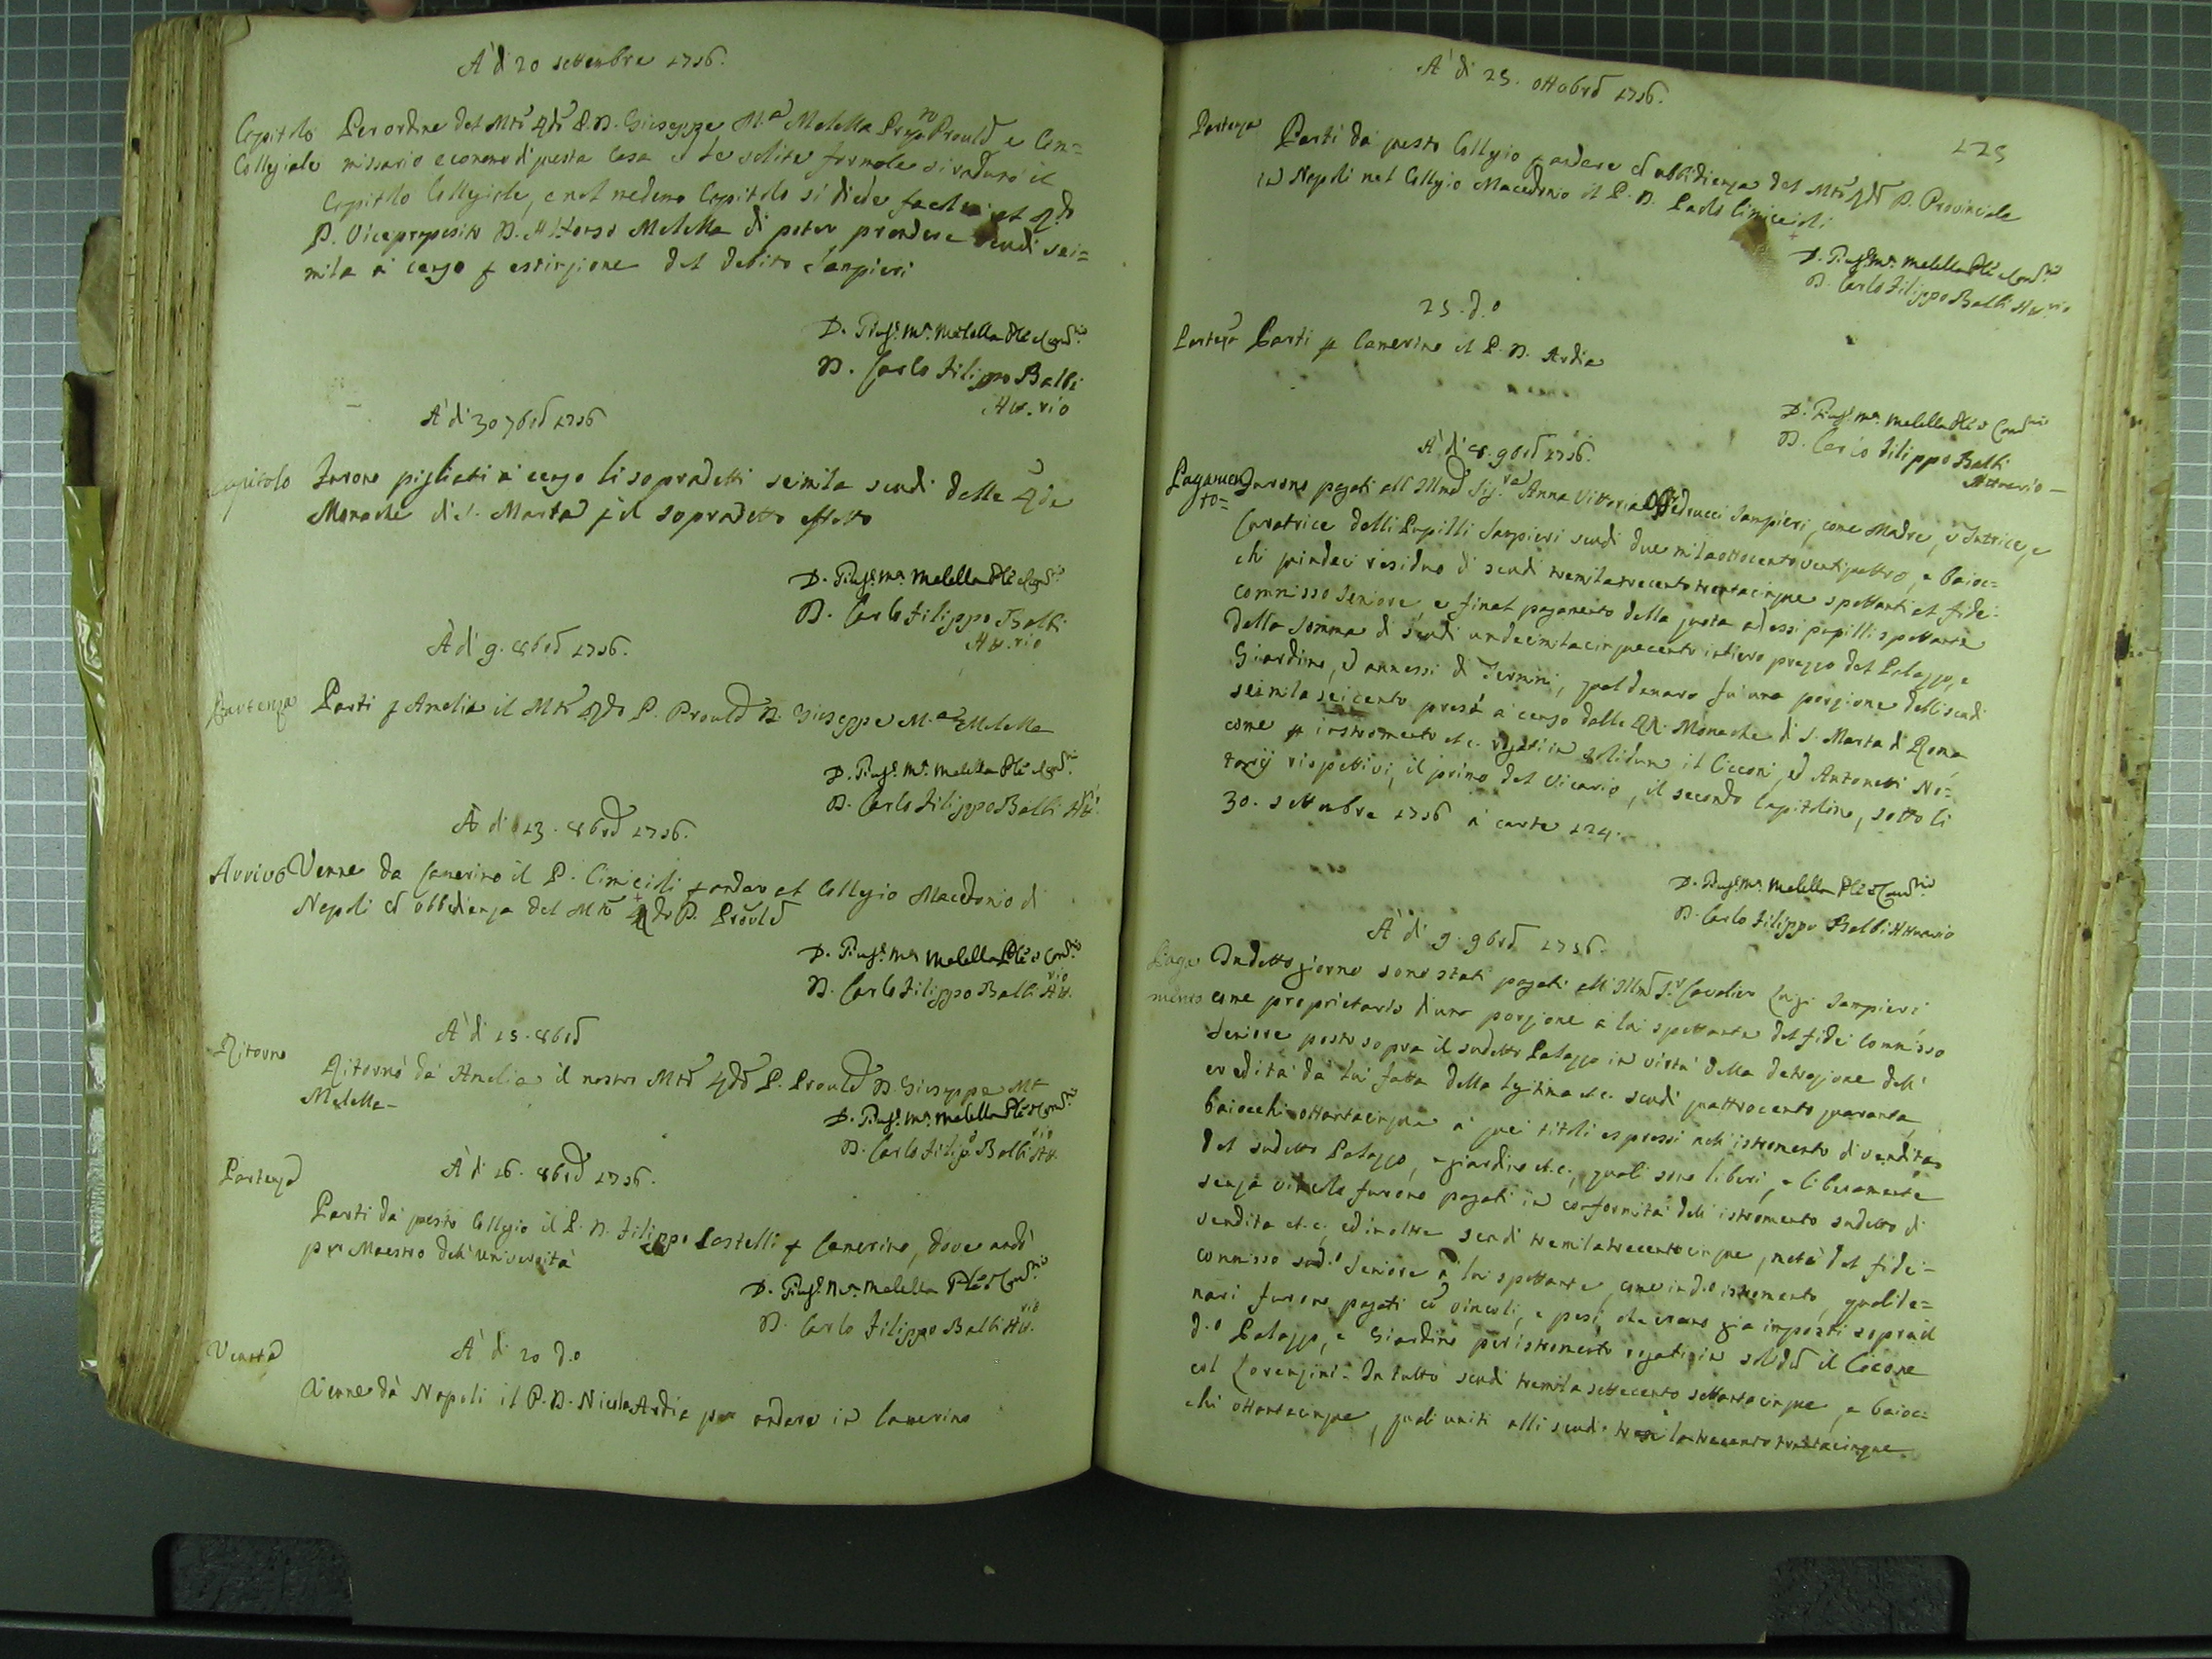 A' dì 20 settembre 1726.
Capitolo Per ordine del M.to R.do P. D. Giuseppe M.a Melella Prep.to Prou.le e Com=
Collegiale missario economo di questa Casa e le solite formole si radunò il
Capitolo Collegiale, e nel medemo Capitolo si diede facoltà al R.do
P. Vicepreposito D. Alfonso Melella di poter prendere scudi sei=
mila a censo p estinzione del debito Sanpieri
D. Gius.e M.a Melella
D. Carlo Filippo Balbi
Att.rio
A' dì 30 7brē 1726
Capitolo Furono pigliati a censo li sopradetti seimila scudi dalle R.de
Monache di S. Marta p il sopradetto effetto
D. Gius.e M.a Melella
D. Carlo Filippo Balbi
Att.rio
A' dì 9. 8brē 1726.
Partenza Partì p Amelia il M.to R.do P. Prou.le D. Giuseppe M.a Melella
D. Gius.e M.a Melella
D. Carlo Filippo Balbi Att.
A' dì 13. 8brē 1726.
Arrivo Venne da Camerino il P. Cimicioli p andar al Collegio Macedonio di
Napoli cō obbedienza del M.to R.do P. Prou.le
D. Gius.e M.a Melella
D. Carlo Filippo Balbi Att.rio
A' dì 15. 8brē
Ritorno
Ritornò da Amelia il nostro M.to R.do P. Prou.le D. Giuseppe M.a
Melella
D. Gius.e M.a Melella
D. Carlo Filip.o Balbi Att.rio
Partenza
A' dì 16. 8brē 1726.
Partì da questo Collegio il P. D. Filippo Castelli p Camerino, dove andò
p Maestro dell'Università
D. Gius.e M.a Melella
D. Carlo Filippo Balbi Att.rio
Venuta
A' dì 20 d.o
Venne da Napoli il P. D. Nicola Ardia per andare in Camerino
A' dì 25. ottobrē 1726.
125
Partenza Partì da questo Collegio p andare cō obbidienza del M.to R.do P. Provinciale
in Napoli nel Collegio Macedonio il P. D. Paolo Cimicioli
D. Gius.e M.a Melella
D. Carlo Filippo Balbi Att.rio
25. d.o
Partenza Partì p Camerino il P. D. Ardia
D. Gius.e M.a Melella
D. Carlo Filippo Balbi
Attuario
A' dì 8. 9brē 1726.
Pagamen Furono pagati all'Illma Sig.ra Anna Vittoria Sanpieri, come Madre, e Tutrice, e
to= Curatrice delli Pupilli Sanpieri scudi due mila ottocento ventiquattro, e baioc=
chi quindeci residuo di scudi tremilatrecentotrentacinque spettanti al fidei=
commisso Seniore, e final pagamento della quota ad essi pupilli spettante
della somma di scudi undecimilacinquecento intiero prezzo del Palazzo, e
Giardino, ed annessi di Termini, qual denaro fù una porzione delli scudi
seimila seicento presi a censo dalle RR. Monache di S. Marta di Roma
come p instromento et c. rogati in solidum il Cicconi, ed Antonetti No=
tarij rispettivi, il primo del Vicario, il secondo Capitolino, sotto li
30. settembre 1726 a carte 124.
D. Gius.e M.a Melella
D. Carlo Filippo Balbi Attuario
A' dì 9. 9brē 1726.
Paga In detto giorno sono stati pagati all'Illmo S.r Cavalier Luigi Sanpieri
mento come proprietario d'una porzione a lui spettante del fidei commisso
Seniore posto sopra il sudetto Palazzo in virtù della detrazione dell'
eredità da lui fatta della legitima et c. scudi quattrocento quaranta,
baiocchi ottantacinque a quei titoli espressi nell'istromento di vendita
del sudetto Palazzo, e giardino et c., quali sono liberi, e liberamente
senza vincolo furono pagati in conformità dell'istromento sudetto di
vendita et c., ed inoltre scudi tremilatrecentocinque, metà del fidei=
commisso sud.o Seniore a lui spettante, come in d.o istromento, quali de=
nari furono pagati cō vincoli, e pesi, che erano gia imposti sopra il
d.o Palazzo, e Giardino per istromento rogati in solidū il Cicone
col Lorenzini. In tutto scudi tremila settecento settantacinque, e baioc=
chi ottantacinque, quali uniti alli scudi tremilatrecentotrentacinque